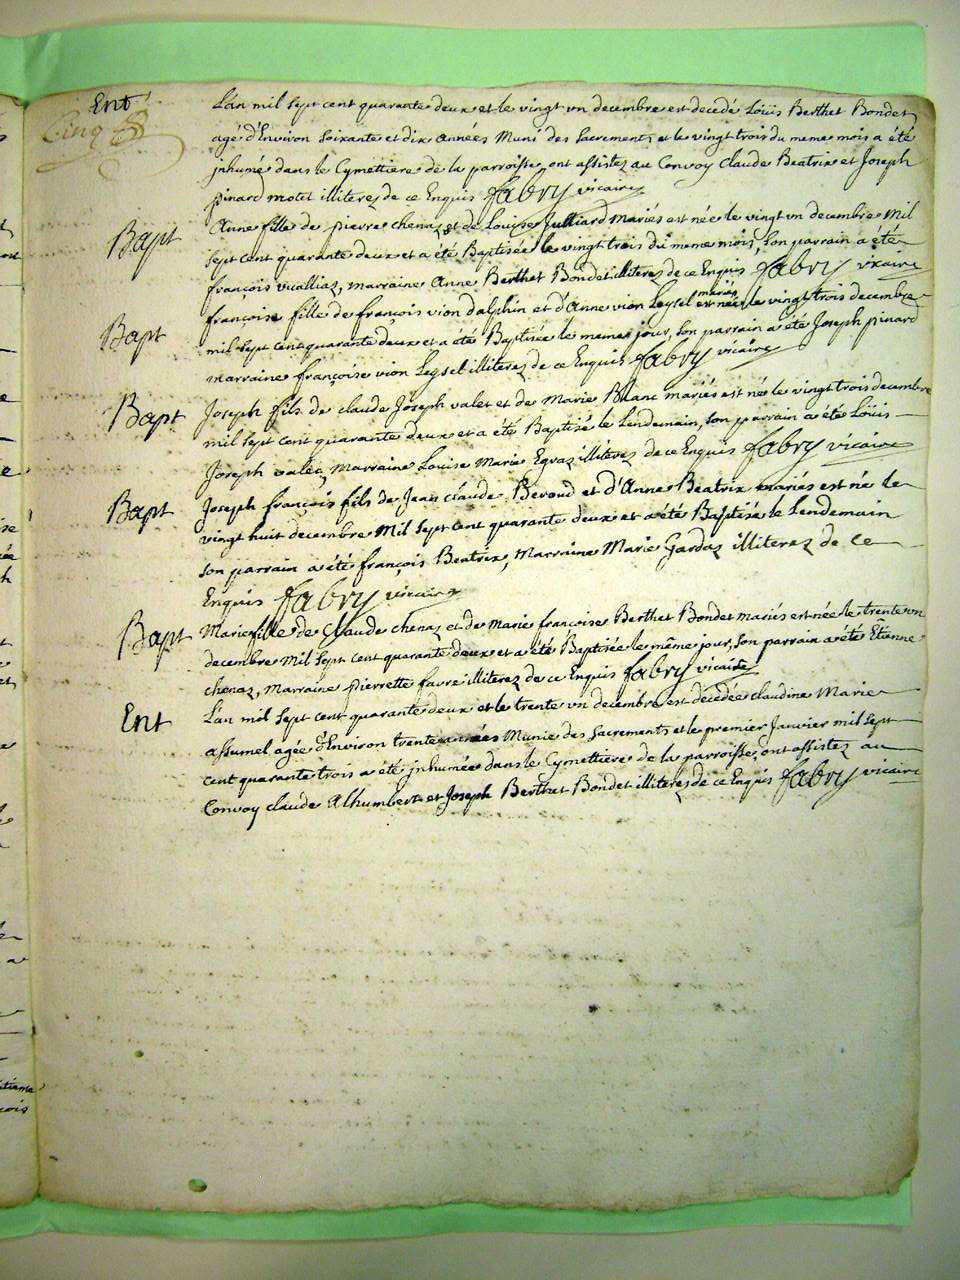 Ent
Cinq
L'an mil sept cent quarante deux et le vingt un decembre est decedé Loüis Berthet Bondet
agé d'Environ soixante et dix années Muni des sacrements et le vingt trois du meme mois a été
jnhumé dans le Cymettiere de la parroisse, ont assistez au Convoy Claude Beatrix et Joseph
pinard motet illiterez de ce Enquis fabry vicaire
Bapt
Anne fille de pierre chenaz et de Louise Julliard Mariés est née le vingt un decembre Mil
sept cent quarante deux et a été Baptisée le vingt trois du meme mois, son parrain a été
françois vicalliaz, marraine Anne Berthet Bondet illiterez de ce Enquis fabry vicaire
Bapt
françoise fille de françois vion dalphin et d'Anne vion Leysel mariés est née le vingt trois decembre
mil sept cent quarante deux et a été Baptisée le meme jour, son parrain a été Joseph pinard
marraine françoise vion Leysel illiterez de ce Enquis fabry vicaire
Bapt
Joseph fils de claude Joseph valet et de Marie Blanc mariés est né le vingt trois decembre
mil sept cent quarante deux et a été Baptisé le Lendemain, son parrain a été Loüis
Joseph Marraine Louise Marie Egraz illiterez de ce Enquis fabry vicaire
Bapt
Joseph françois fils de Jean Claude Bevoud et d'Anne Beatrix mariés est né le
vingt huit decembre Mil sept cent quarante deux et a été Baptisé le Lendemain
son parrain a été françois Beatrix, Marraine Marie Gardaz illiterez de ce
Enquis fabry vicaire
Bapt
Marie fille de Claude chenaz et de Marie francoise Berthet Bondet mariés est née le trente un
decembre Mil sept cent quarante deux et a été Baptisée le même jour, son parrain a été Étienne
chenaz, Marraine pierrette favre illiterez de ce Enquis fabry vicaire
Ent
L'an mil sept cent quarante deux et le trente un decembre est decedée claudine Marie
assumel agée d'Environ trente années Munie des Sacrements et le premier Janvier mil sept
cent quarante trois a été jnhumée dans le Cymettiere de la parroisse, ont assistez au
Convoy claude Alhumbert et Joseph Berthet Bondet illiterez de ce Enquis fabry vicaire